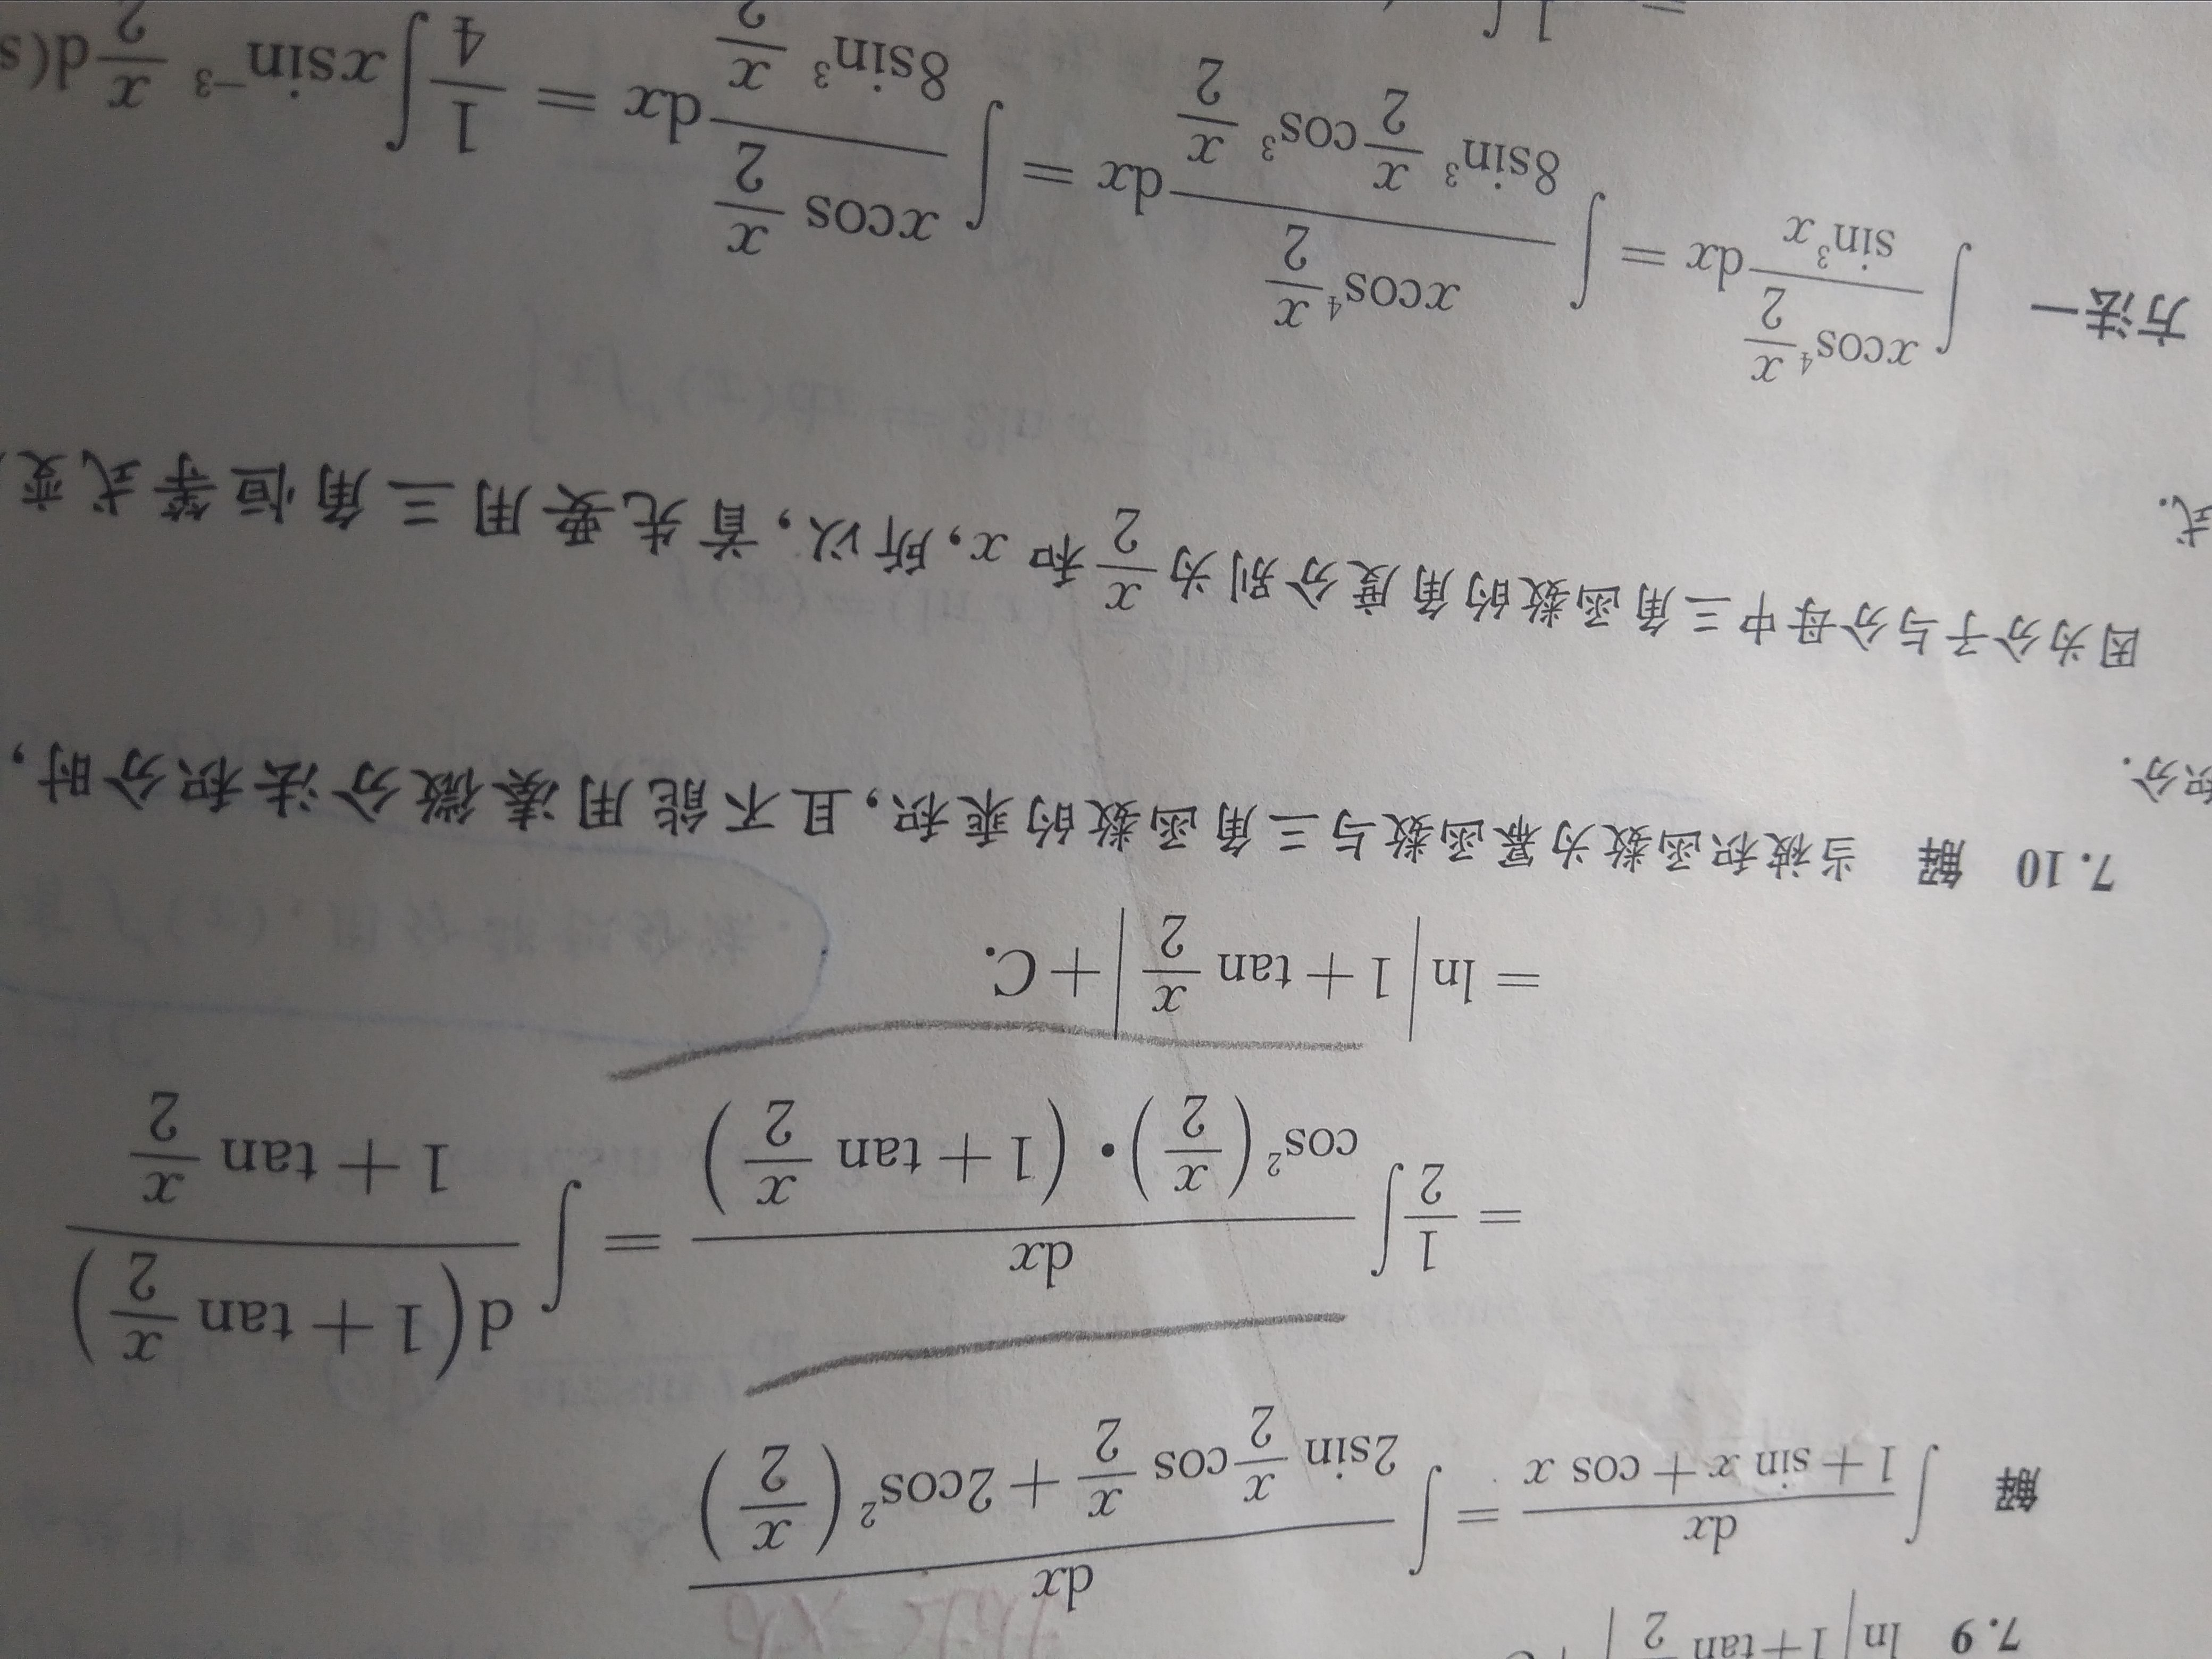 7.9 ln|1+tan x/2|
解 ∫ dx/(1+sin x+cos x) = ∫ dx/(2sin x/2 cos x/2 + 2cos²(x/2))
= 1/2 ∫ dx/(cos²(x/2)·(1+tan x/2)) = ∫ d(1+tan x/2)/(1+tan x/2)
= ln|1+tan x/2|+C.
7.10 解 当被积函数为幂函数与三角函数的乘积,且不能用凑微分法积分时,
积分.
因为分子与分母中三角函数的角度分别为 x/2 和 x,所以,首先要用三角恒等式变
式.
方法一 ∫ xcos⁴ x/2 / sin³x dx = ∫ xcos⁴ x/2 / (8sin³ x/2 cos³ x/2) dx = ∫ xcos x/2 / (8sin³ x/2) dx = 1/4 ∫ xsin⁻³ x/2 d(s